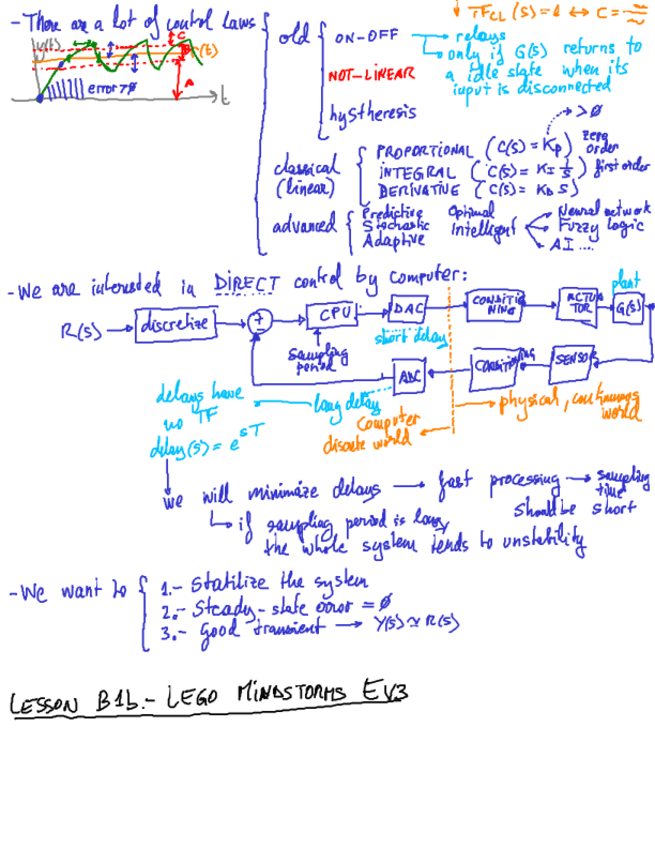 ↓ TF_CL (s) = 1 ↔ C =
- There are a lot of control laws
y(t)
C
R(t)
error > 0
A
t
old
ON-OFF → relays
→ only if G(s) returns to
a idle state when its
input is disconnected
NOT-LINEAR
hystheresis
> 0
classical
(linear)
PROPORTIONAL ( C(s) = Kp ) zero
order
INTEGRAL ( C(s) = KI 1/s ) first order
DERIVATIVE ( C(s) = KD s )
advanced
Predictive
Stochastic
Adaptive
Optimal
Intelligent
Neural network
Fuzzy logic
AI ...
- We are interested in DIRECT control by computer:
R(s) → discretize
CPU
DAC
CONDITIO
NING
ACTUA
TOR
plant
G(s)
sampling
period
short delay
ADC
CONDITIONING
SENSOR
delays have
no TF
delay(s) = e^sT
long delay
computer
discrete world
physical, continuous
world
we will minimize delays → fast processing → sampling
time
should be short
↳ if sampling period is long
the whole system tends to unstability
- We want to
1.- Statilize the system
2.- Steady-state error = 0
3.- Good transient → Y(s) ≃ R(s)
LESSON B1b.- LEGO MINDSTORMS EV3